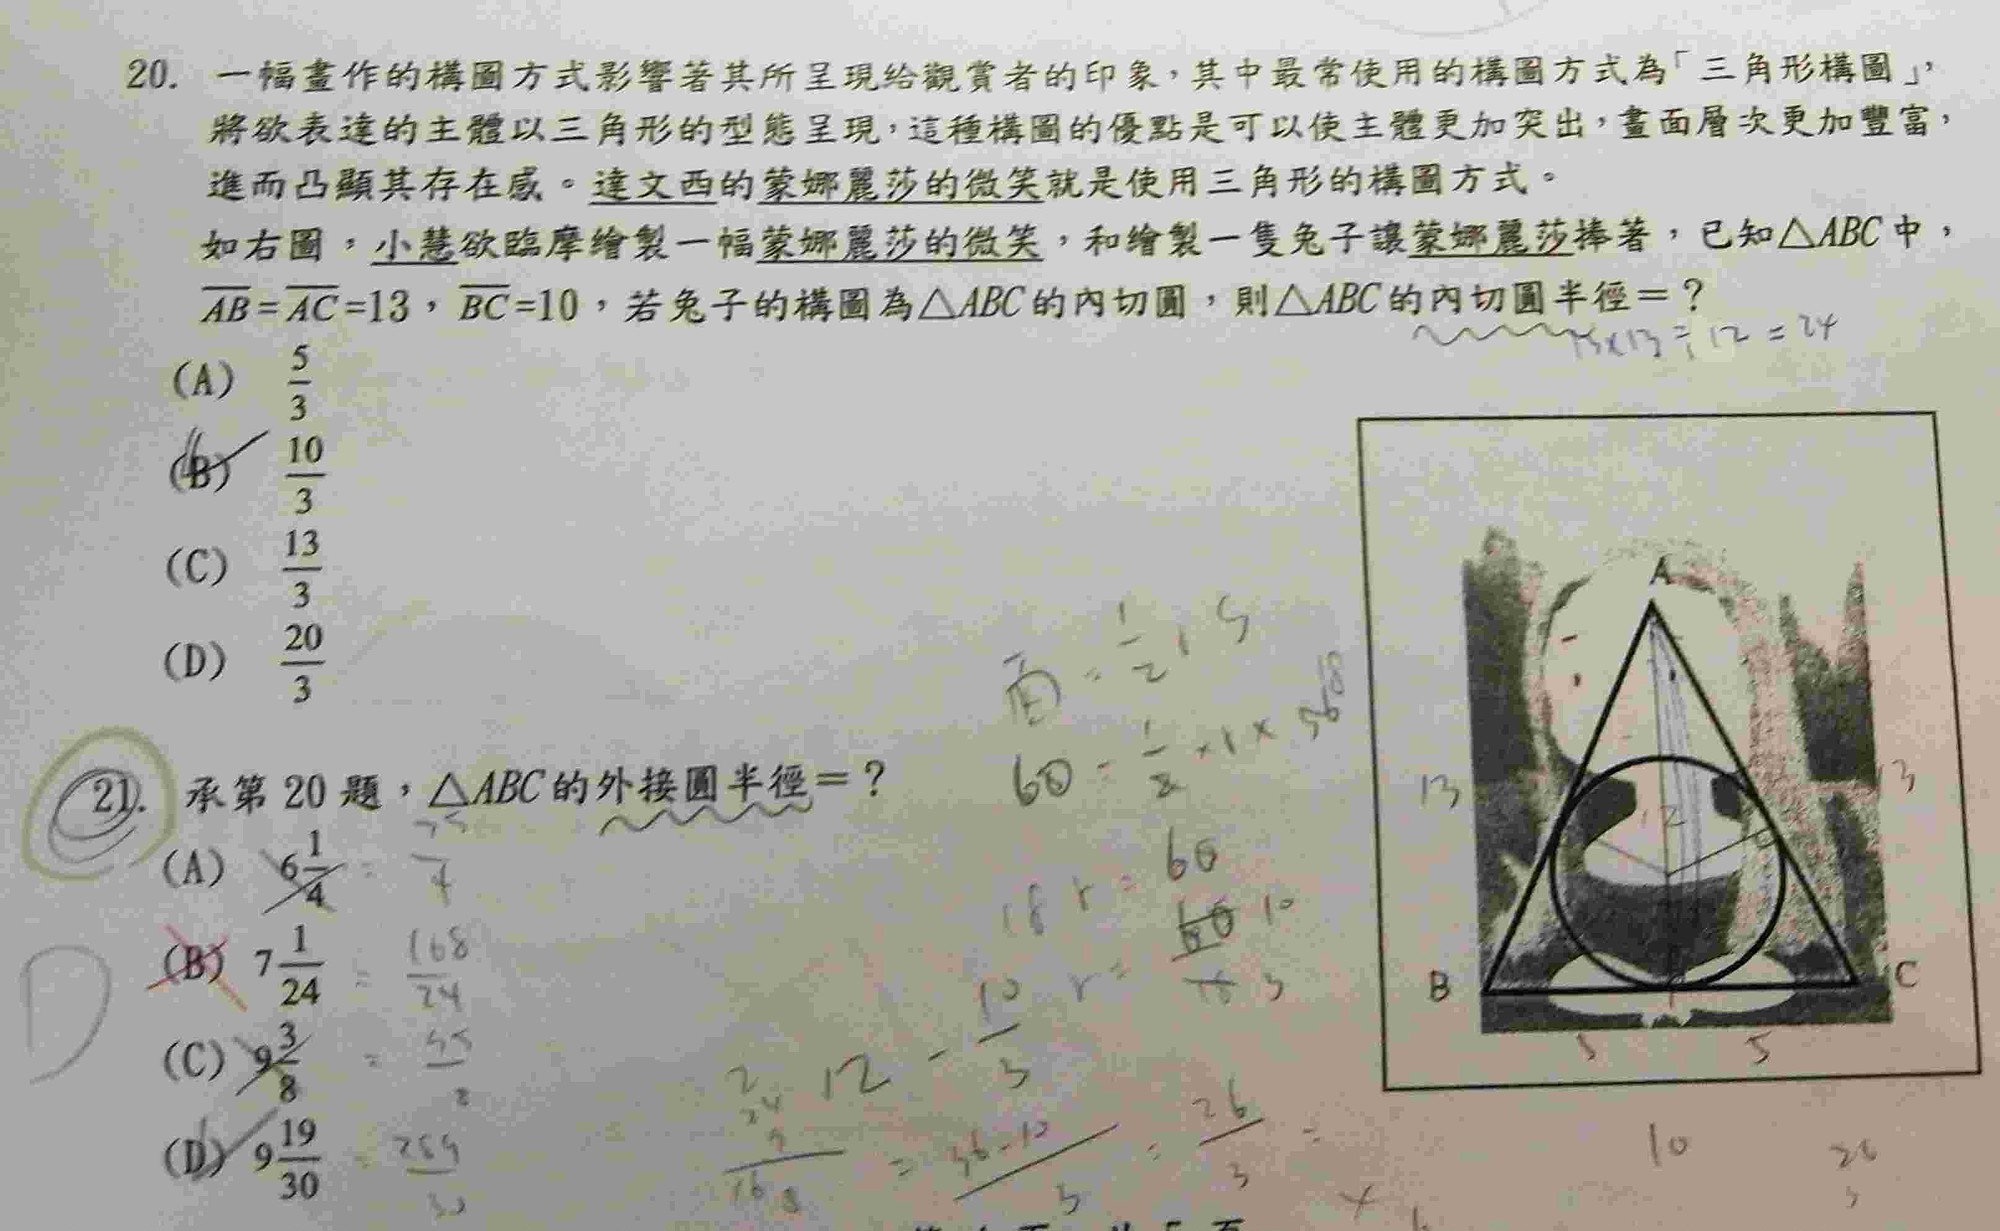 20. 一幅畫作的構圖方式影響著其所呈現給觀賞者的印象，其中最常使用的構圖方式為「三角形構圖」，
將欲表達的主體以三角形的型態呈現，這種構圖的優點是可以使主體更加突出，畫面層次更加豐富，
進而凸顯其存在感。達文西的蒙娜麗莎的微笑就是使用三角形的構圖方式。
如右圖，小慧欲臨摩繪製一幅蒙娜麗莎的微笑，和繪製一隻兔子讓蒙娜麗莎捧著，已知△ABC中，
AB=AC=13，BC=10，若兔子的構圖為△ABC的內切圓，則△ABC的內切圓半徑＝？
(A) 5/3
(B) 10/3
(C) 13/3
(D) 20/3
21. 承第 20 題，△ABC的外接圓半徑＝？
(A) 6 1/4
(B) 7 1/24 = 168/24
(C) 9 3/8
(D) 9 19/30
D
18 r = 60
12 - 10/3
= 36-10/3 = 26/3 =
A
B
C
13
13
12
5
5
10